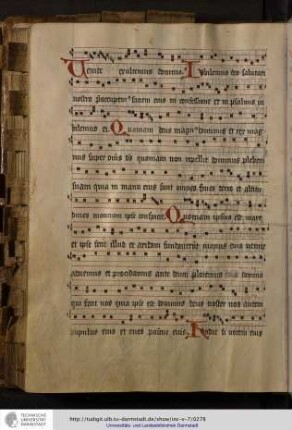 Venite exultemus domino Jubilemus deo salutari
nostro preocupemus faciem eius in confessione et in psalmis iu
bilemus ei Quoniam deus magnus dominus et rex mag
nus super omnes deos quoniam non repellet dominus plebem
suam quia in manu eius sunt omnes fines terre et altitu
dines montium ipse conspicit Quoniam ipsius est mare
et ipse fecit illud et aridam fundaverunt manus eius venite
adoremus et procidamus ante deum ploremus coram domino
qui fecit nos quia ipse est dominus deus noster nos autem
populus eius et oves pascue eius Hodie si vocem eius
TECHNISCHE
UNIVERSITÄT
DARMSTADT
http://tudigit.ulb.tu-darmstadt.de/show/inc-v-7/0278
Universitäts- und Landesbibliothek Darmstadt